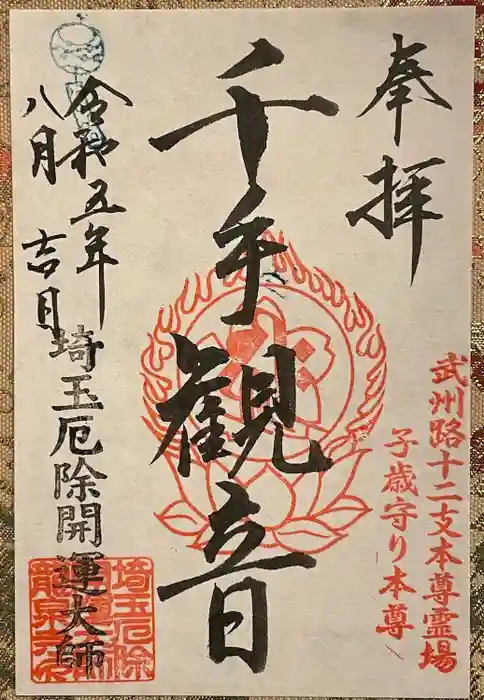 奉拝
武州路十二支本尊霊場
子歳守り本尊
千手観音
令和五年
八月 吉日
埼玉厄除開運大師
埼玉厄除
龍泉寺